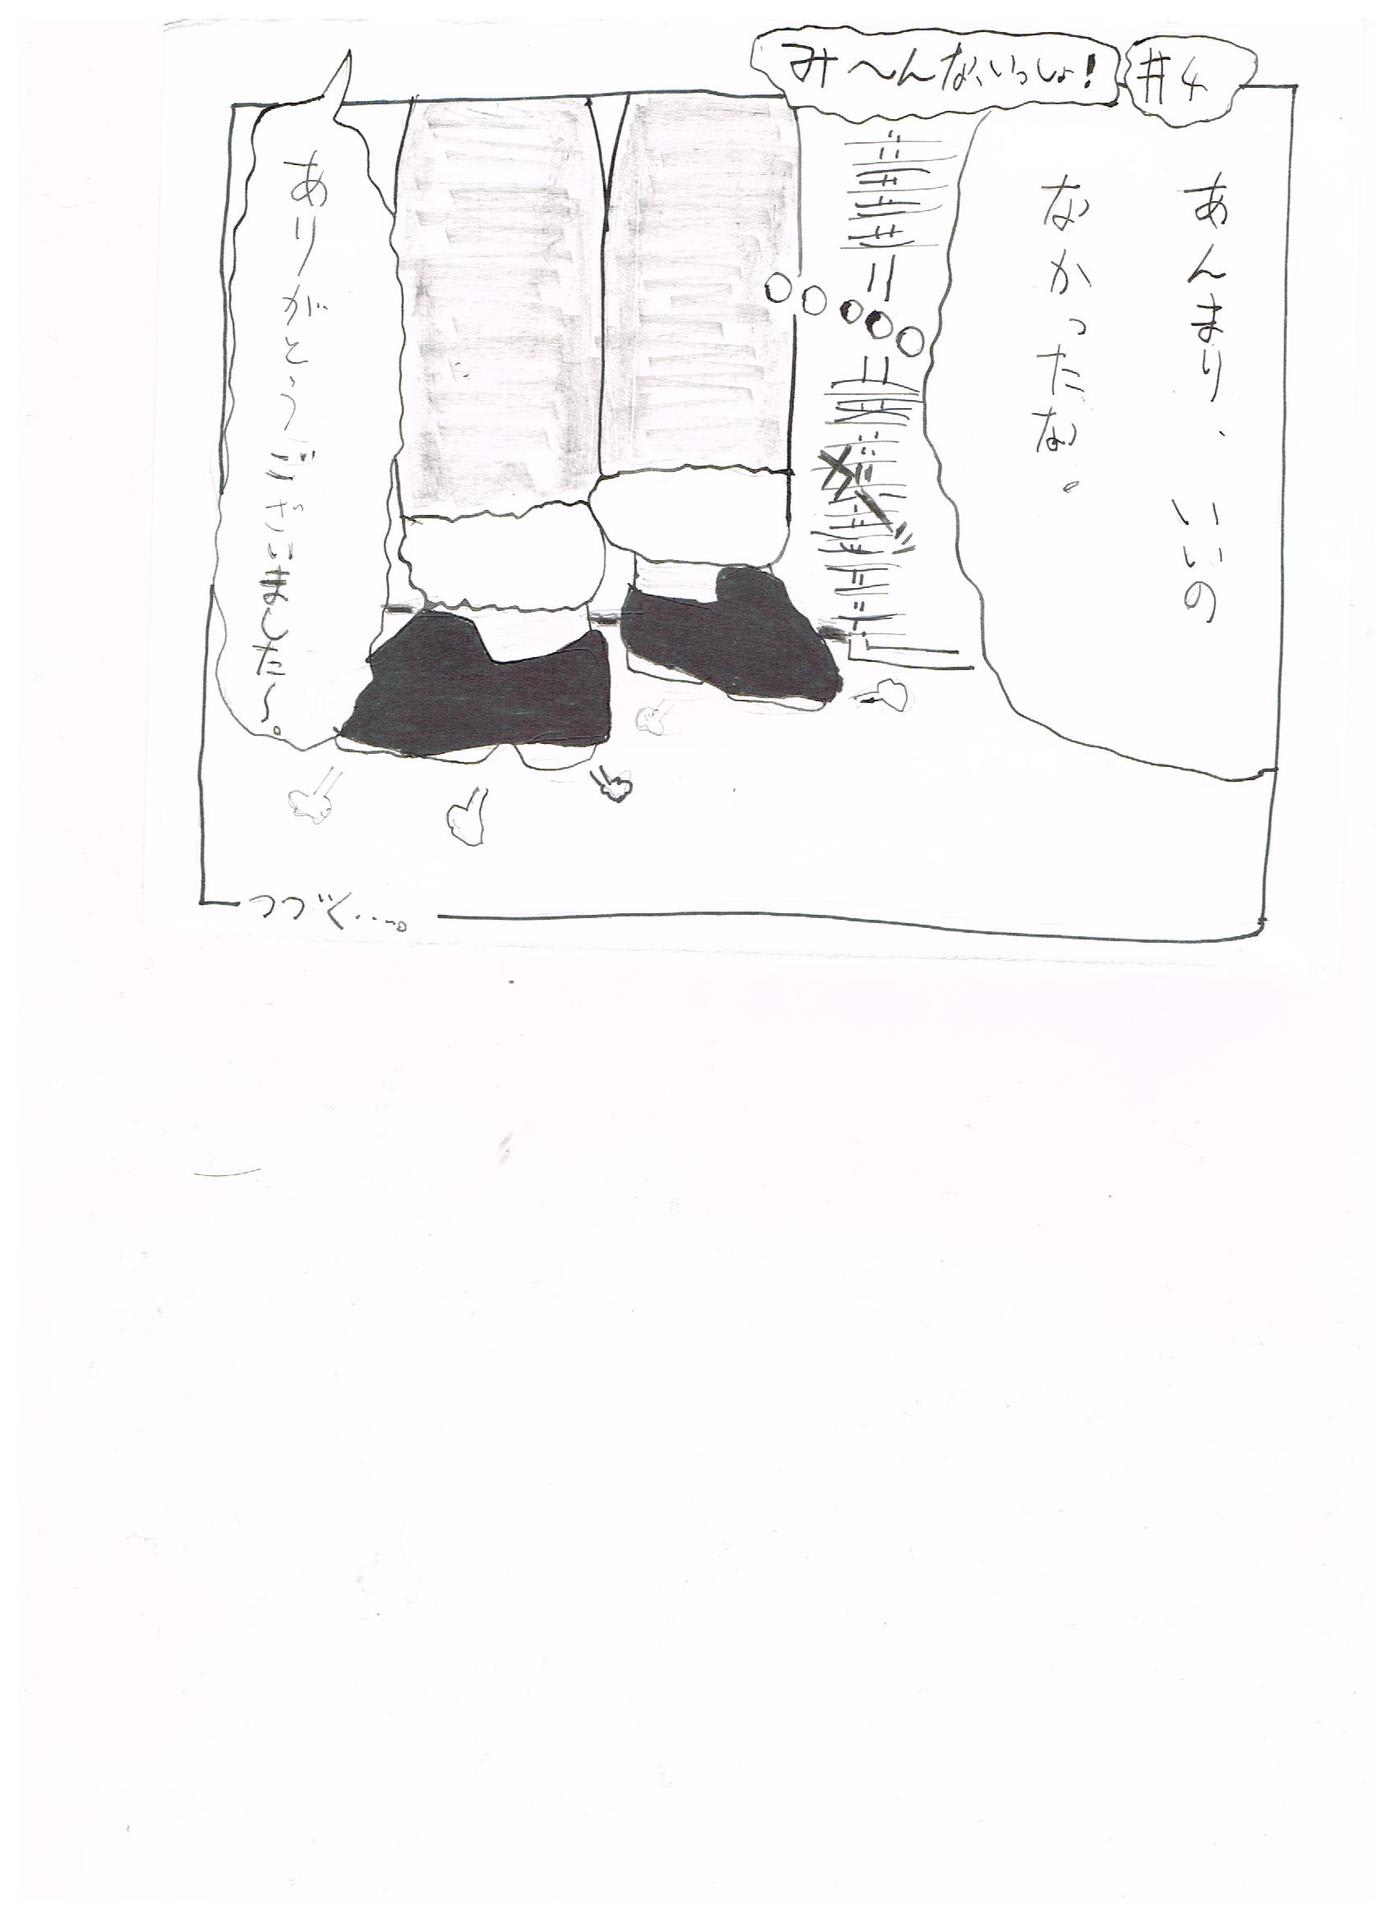 み〜んな、いっしょ!
#4
あんまり、いいの
なかったな。
ありがとうございました〜。
つづく…。